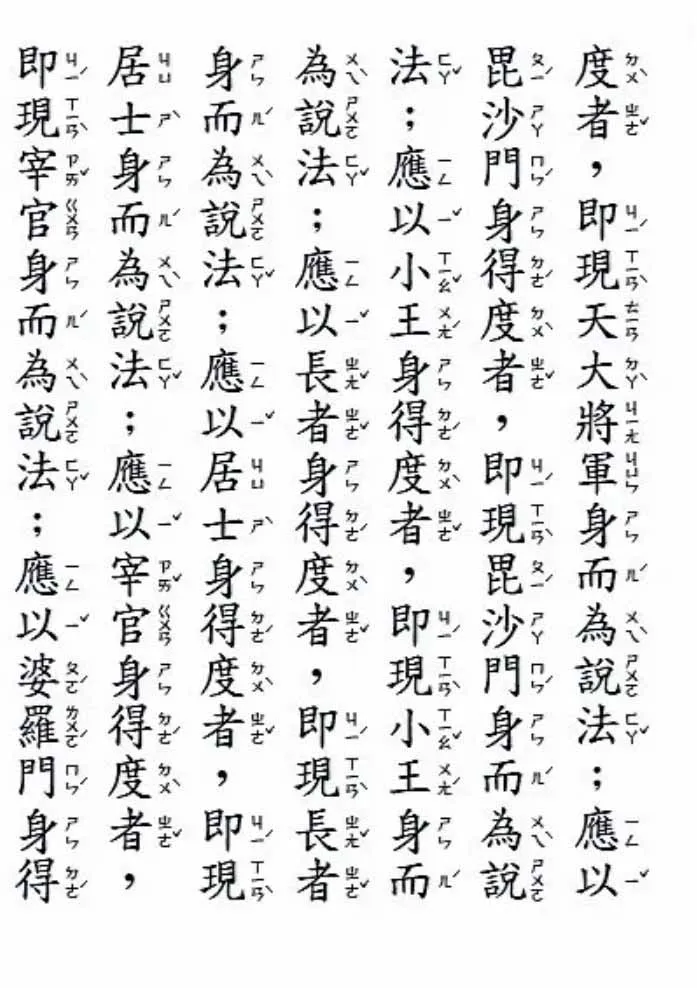 度者，即現天大將軍身而為說法；應以
毘沙門身得度者，即現毘沙門身而為說
法；應以小王身得度者，即現小王身而
為說法；應以長者身得度者，即現長者
身而為說法；應以居士身得度者，即現
居士身而為說法；應以宰官身得度者，
即現宰官身而為說法；應以婆羅門身得